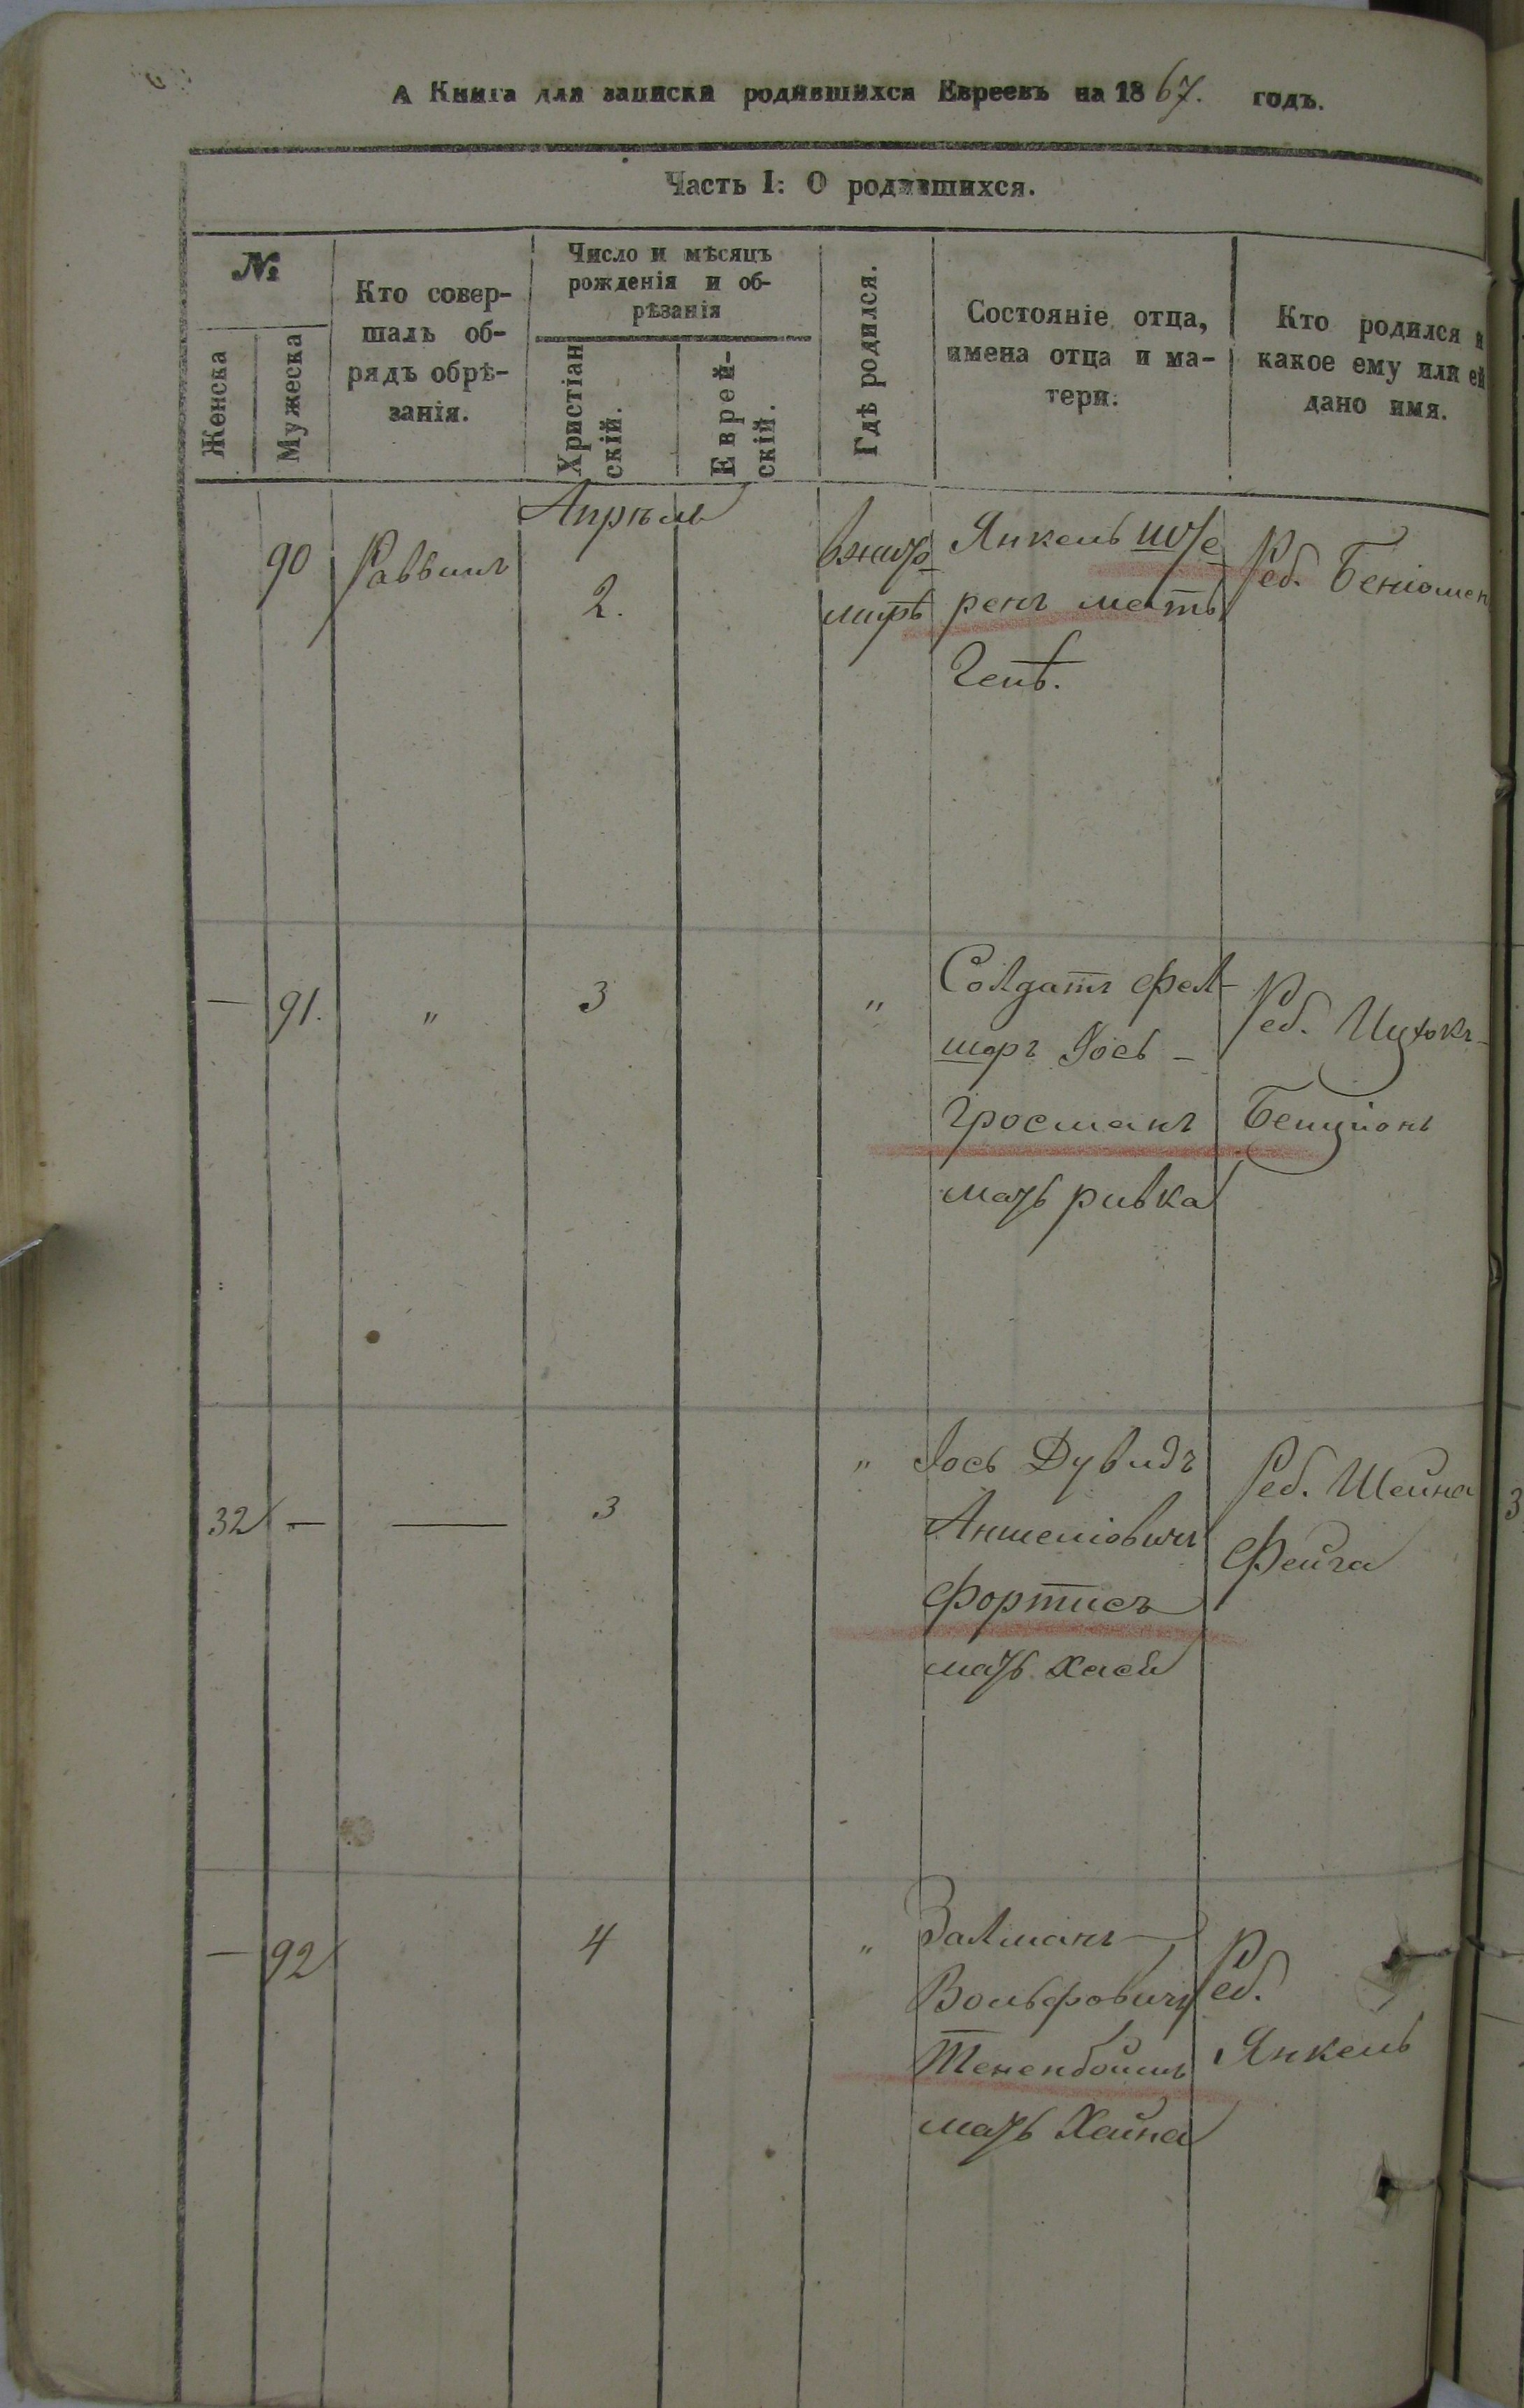 А Книга для записки родившихся Евреевъ на 1867. годъ.
Часть I: О родившихся.
№
Женска
Мужеска
Кто совер-
шалъ об-
рядъ обрѣ-
занія.
Число и мѣсяцъ
рожденія и об-
рѣзанія
Христіан
скій.
Еврей-
скій.
Гдѣ родился.
Состояніе отца,
имена отца и ма-
тери.
Кто родился и
какое ему или ей
дано имя.
Апрѣль
90
Раввинъ
2.
вжито
мирѣ
Янкель
ренъ мать
Реб. Беніомен
— 91. " 3 "
Солдатъ фел-
шоръ Іось –
Гросманъ
мать ривка
Реб. Ицхокъ-
Бенціонъ
32 — — 3 "
Іось Дувидъ
Аншеліовичъ
Фортисъ
мать Хася
Реб. Шейна
Фейга
— 92 4 "
Залманъ
Вольфовичъ
Тененбоимъ
мать Хайна
Реб.
Янкель